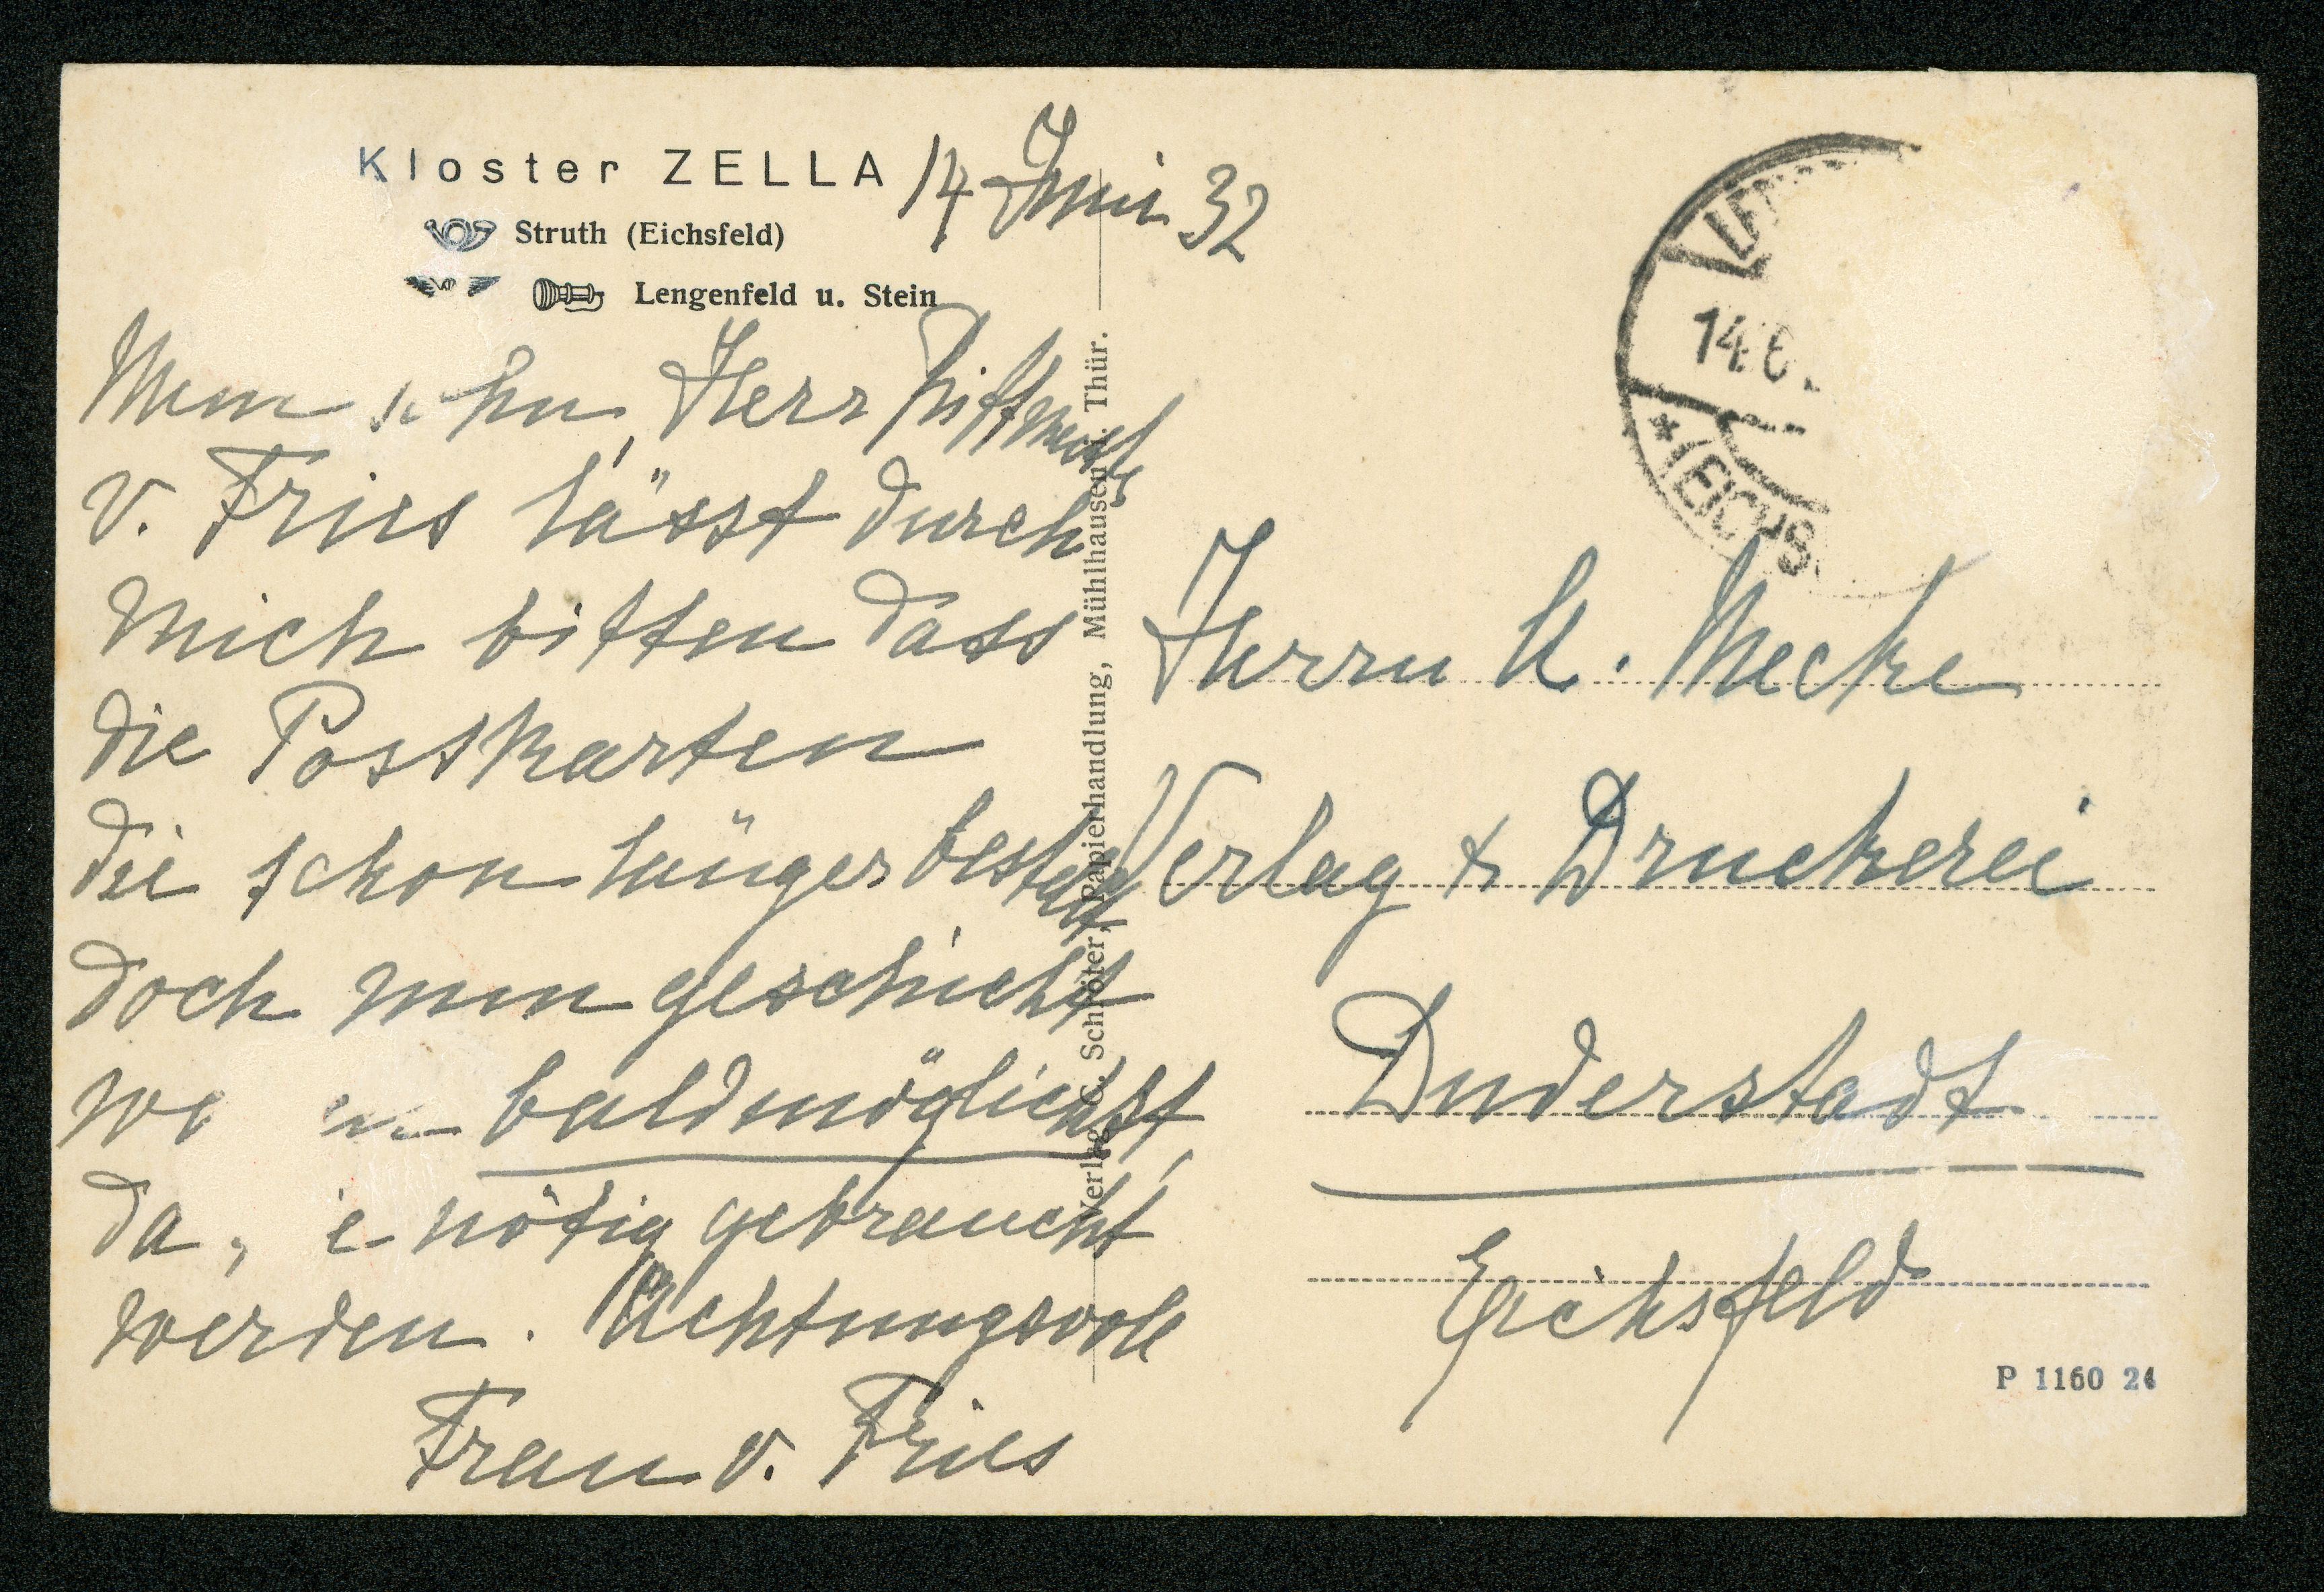 Kloster ZELLA
14 Juni 32
Struth (Eichsfeld)
Lengenfeld u. Stein
Mein Herr Rittmeist
v. Fries lässt durch
mich bitten dass
die Postkarten
die schon länger bestellt
doch nun geschickt
baldmöglichst,
da nötig gebraucht
werden. Achtungsvoll
Frau v. Fries
Verlag C. Schröter, Papierhandlung, Mühlhausen i. Thür.
14.6.
*(EICHS
Herrn A. Mecke
Verlag & Druckerei
Duderstadt
Eichsfeld
P 1160 24